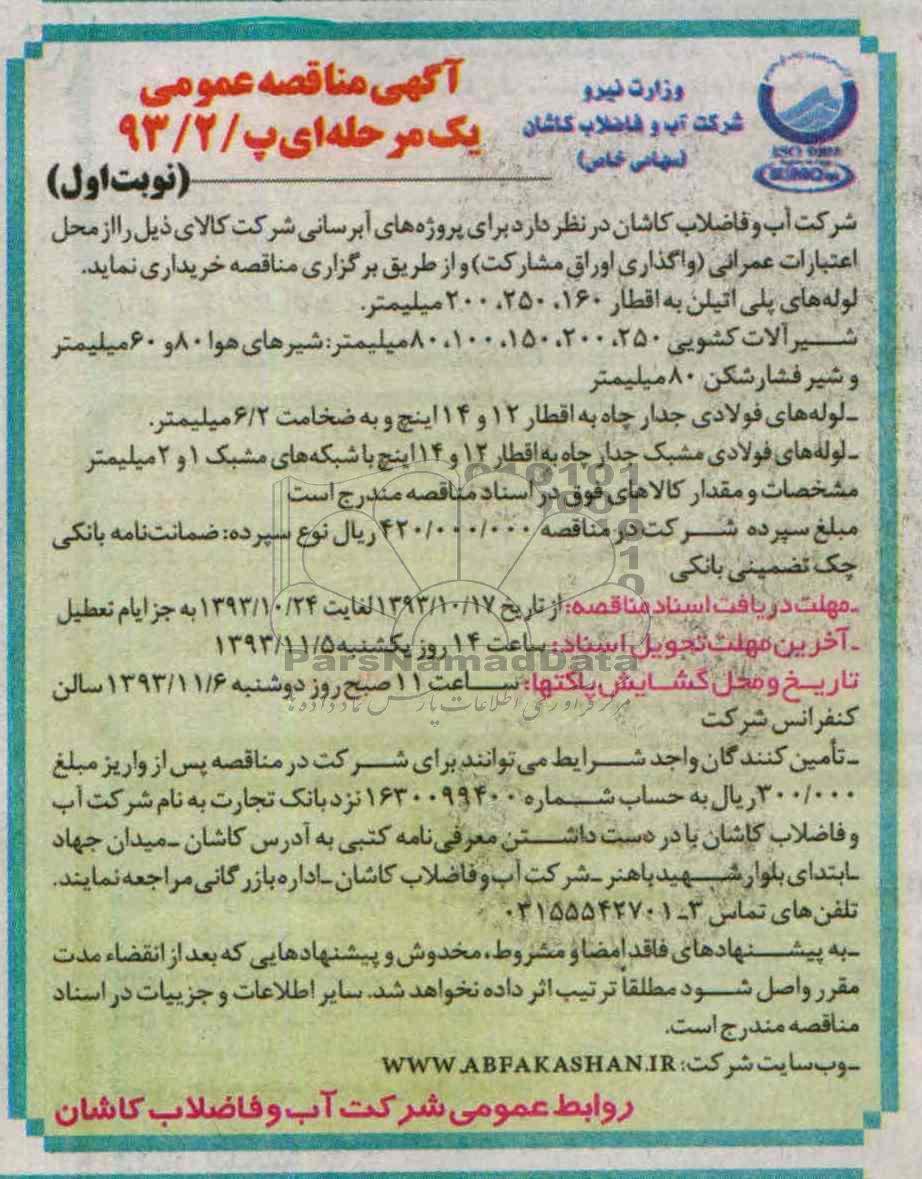 وزارت نیرو
شرکت آب و فاضلاب کاشان
(سهامی خاص)
آگهی مناقصه عمومی
یک مرحله‌ای پ/۹۳/۲
(نوبت اول)
شرکت آب و فاضلاب کاشان در نظر دارد برای پروژه‌های آبرسانی شرکت کالای ذیل را از محل
اعتبارات عمرانی (واگذاری اوراق مشارکت) و از طریق برگزاری مناقصه خریداری نماید.
لوله‌های پلی اتیلن به اقطار ۱۶۰، ۲۵۰، ۲۰۰ میلیمتر.
شیرآلات کشویی ۲۵۰، ۲۰۰، ۱۵۰، ۱۰۰، ۸۰ میلیمتر: شیرهای هوا ۸۰ و ۶۰ میلیمتر
و شیر فشارشکن ۸۰ میلیمتر
ـ لوله‌های فولادی جدار چاه به اقطار ۱۲ و ۱۴ اینچ و به ضخامت ۶/۲ میلیمتر.
ـ لوله‌های فولادی مشبک جدار چاه به اقطار ۱۲ و ۱۴ اینچ با شبکه‌های مشبک ۱ و ۲ میلیمتر
مشخصات و مقدار کالاهای فوق در اسناد مناقصه مندرج است
مبلغ سپرده شرکت در مناقصه ۴۲۰/۰۰۰/۰۰۰ ریال نوع سپرده: ضمانت‌نامه بانکی
چک تضمینی بانکی
ـ مهلت دریافت اسناد مناقصه: از تاریخ ۱۳۹۳/۱۰/۱۷ لغایت ۱۳۹۳/۱۰/۲۴ به جز ایام تعطیل
ـ آخرین مهلت تحویل اسناد: ساعت ۱۴ روز یکشنبه ۱۳۹۳/۱۱/۵
ParsNamadData
تاریخ و محل گشایش پاکتها: ساعت ۱۱ صبح روز دوشنبه ۱۳۹۳/۱۱/۶ سالن
کنفرانس شرکت
ـ تأمین کنندگان واجد شرایط می‌توانند برای شرکت در مناقصه پس از واریز مبلغ
۳۰۰/۰۰۰ ریال به حساب شماره ۱۶۳۰۰۹۹۴۰۰ نزد بانک تجارت به نام شرکت آب
و فاضلاب کاشان با در دست داشتن معرفی‌نامه کتبی به آدرس کاشان ـ میدان جهاد
ـ ابتدای بلوار شهید باهنر ـ شرکت آب و فاضلاب کاشان ـ اداره بازرگانی مراجعه نمایند.
تلفن‌های تماس ۳ـ ۰۳۱۵۵۵۴۲۷۰۱
ـ به پیشنهادهای فاقد امضا و مشروط، مخدوش و پیشنهادهایی که بعد از انقضاء مدت
مقرر واصل شود مطلقاً ترتیب اثر داده نخواهد شد. سایر اطلاعات و جزییات در اسناد
مناقصه مندرج است.
ـ وب‌سایت شرکت: WWW.ABFAKASHAN.IR
روابط عمومی شرکت آب و فاضلاب کاشان